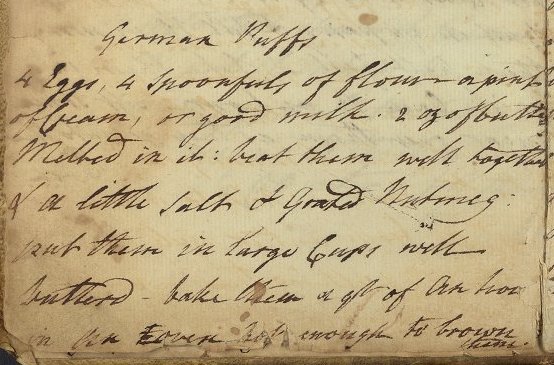 German Puffs
4 Eggs, 4 Spoonfuls of flour a pint
of Cream, or good milk. 2 oz of butter
Melted in it: beat them well together
& a little Salt & Grated Nutmeg:
put them in large Cups well
butterd - bake them a qr of An hour
in An Eoven hot enough to brown
them.